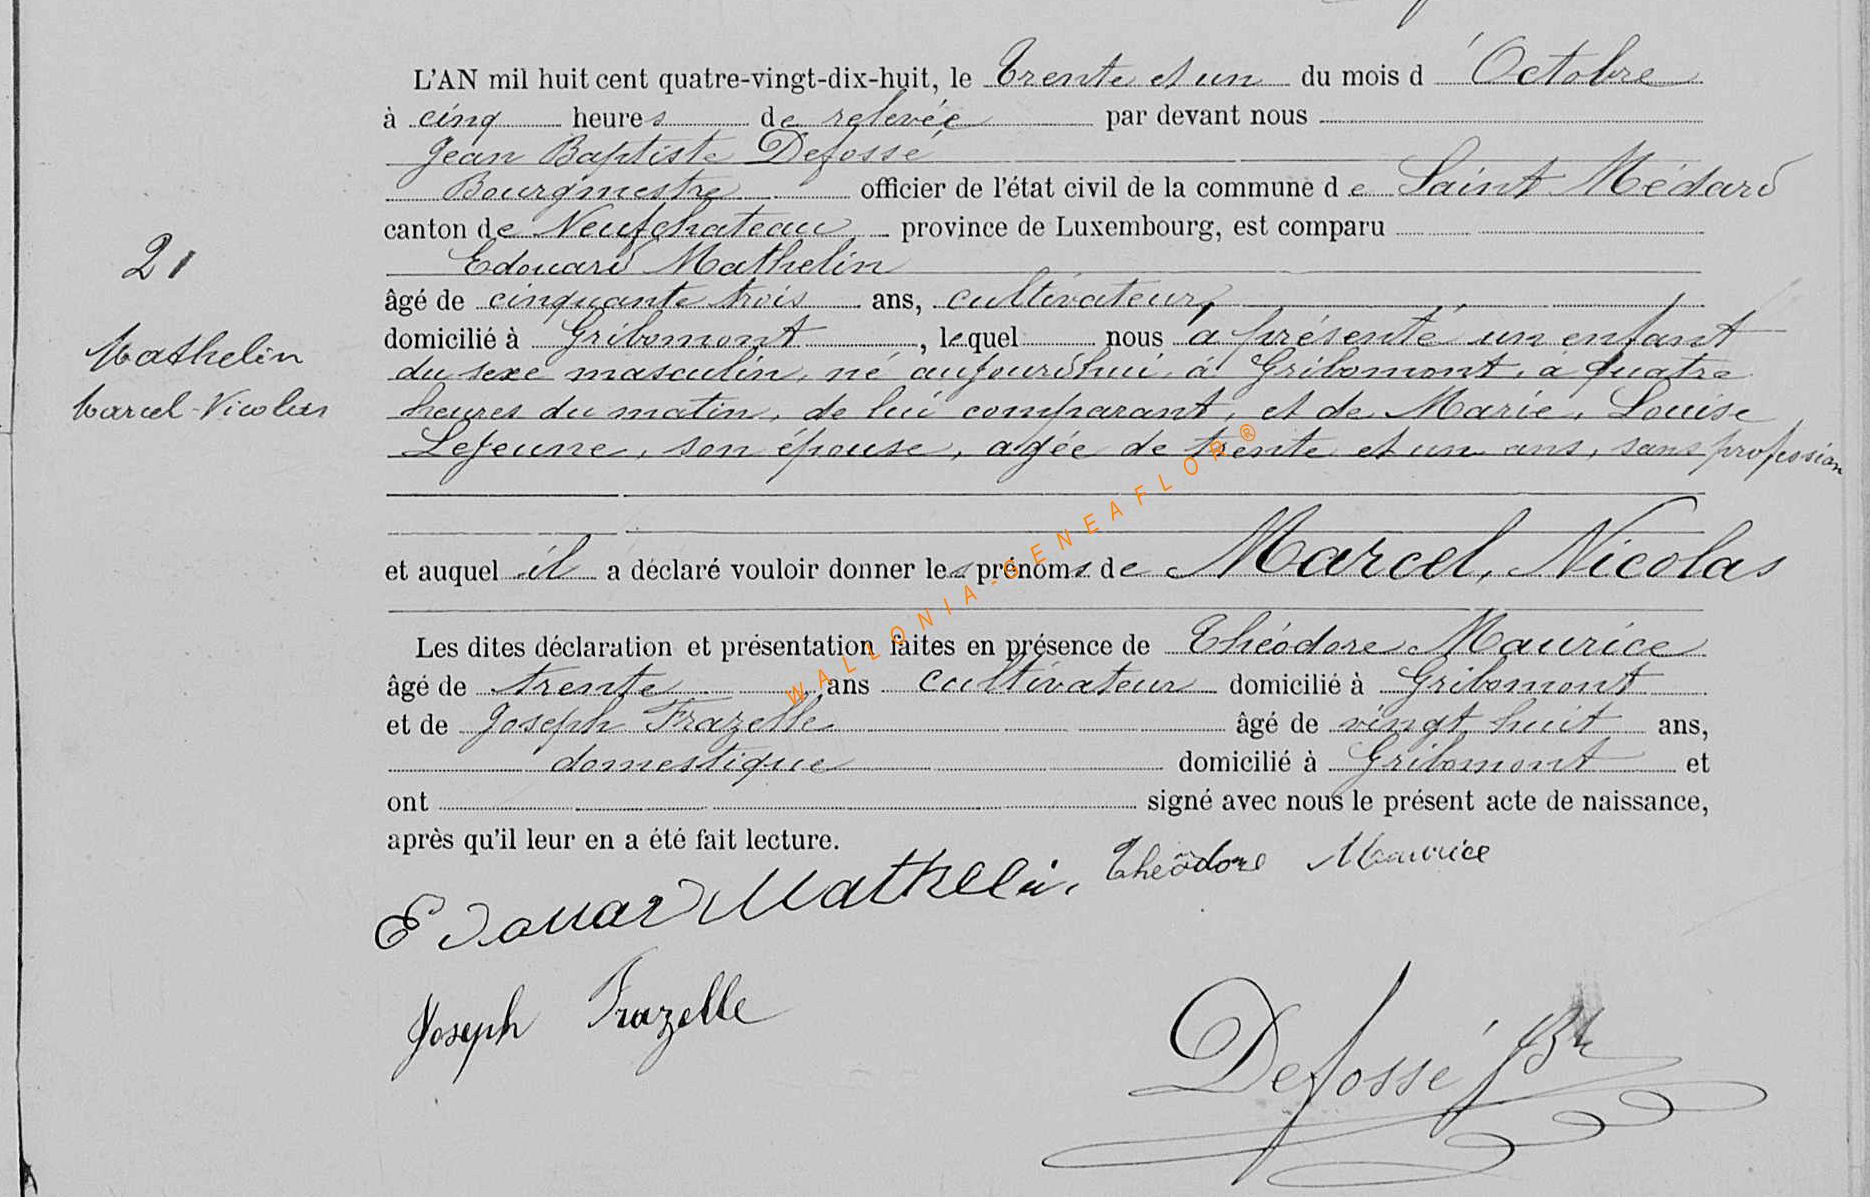 L'AN mil huit cent quatre-vingt-dix-huit, le trente et un du mois d'Octobre
à cinq heures de relevée par devant nous
Jean Baptiste Defossé
Bourgmestre officier de l'état civil de la commune de Saint Médard
canton de Neufchateau province de Luxembourg, est comparu
Edouard Mathelin
âgé de cinquante trois ans, cultivateur,
domicilié à Gribomont, lequel nous a présenté un enfant
du sexe masculin, né aujourd'hui à Gribomont, à quatre
heures du matin, de lui comparant, et de Marie, Louise
Lejeune, son épouse, agée de trente et un ans, sans profession
et auquel il a déclaré vouloir donner les prénoms de Marcel, Nicolas
Les dites déclaration et présentation faites en présence de Théodore Maurice
âgé de trente ans cultivateur domicilié à Gribomont
et de Joseph Frazelle âgé de vingt huit ans,
domestique domicilié à Gribomont et
ont signé avec nous le présent acte de naissance,
après qu'il leur en a été fait lecture.
21
Mathelin
Marcel-Nicolas
Edouard Mathelin. Théodore Maurice
Joseph Frazelle
Defossé JBte
WALLONIA-GENEAFLOR®